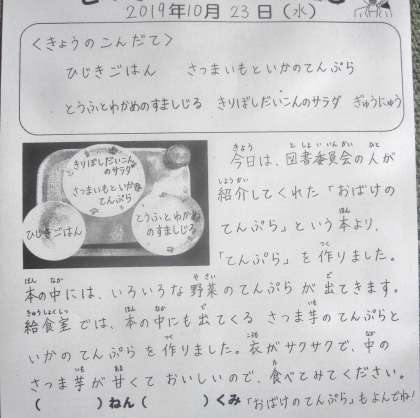 2019年10月23日(水)
<きょうのこんだて>
ひじきごはん　さつまいもといかのてんぷら
とうふとわかめのすましじる　きりぼしだいこんのサラダ　ぎゅうにゅう
きりぼしだいこん
のサラダ
さつまいもといか
てんぷら
ひじきごはん
とうふとわかめ
のすましじる
今日は、図書委員会の人が
紹介してくれた「おばけの
てんぷら」という本より、
「てんぷら」を作りました。
本の中には、いろいろな野菜のてんぷらが出てきます。
給食室では、本の中にも出てくるさつま芋のてんぷらと
いかのてんぷらを作りました。衣がサクサクで、中の
さつま芋が甘くておいしいので、食べてみてください。
(　　　)ねん(　　　)くみ「おばけのてんぷら」もよんでね!